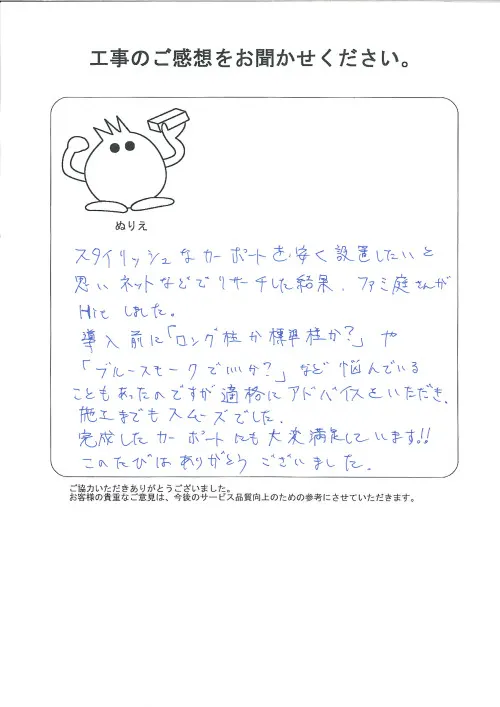 工事のご感想をお聞かせください。
ぬりえ
スタイリッシュなカーポートを安く設置したいと
思いネットなどでリサーチした結果、ファミ庭さんが
Hitしました。
導入前に「ロング柱か標準柱か?」や
「ブルースモークでいいか?」など悩んでいる
こともあったのですが適格にアドバイスをいただき、
施工までもスムーズでした。
完成したカーポートにも大変満足しています!!
このたびはありがとうございました。
ご協力いただきありがとうございました。
お客様の貴重なご意見は、今後のサービス品質向上のための参考にさせていただきます。